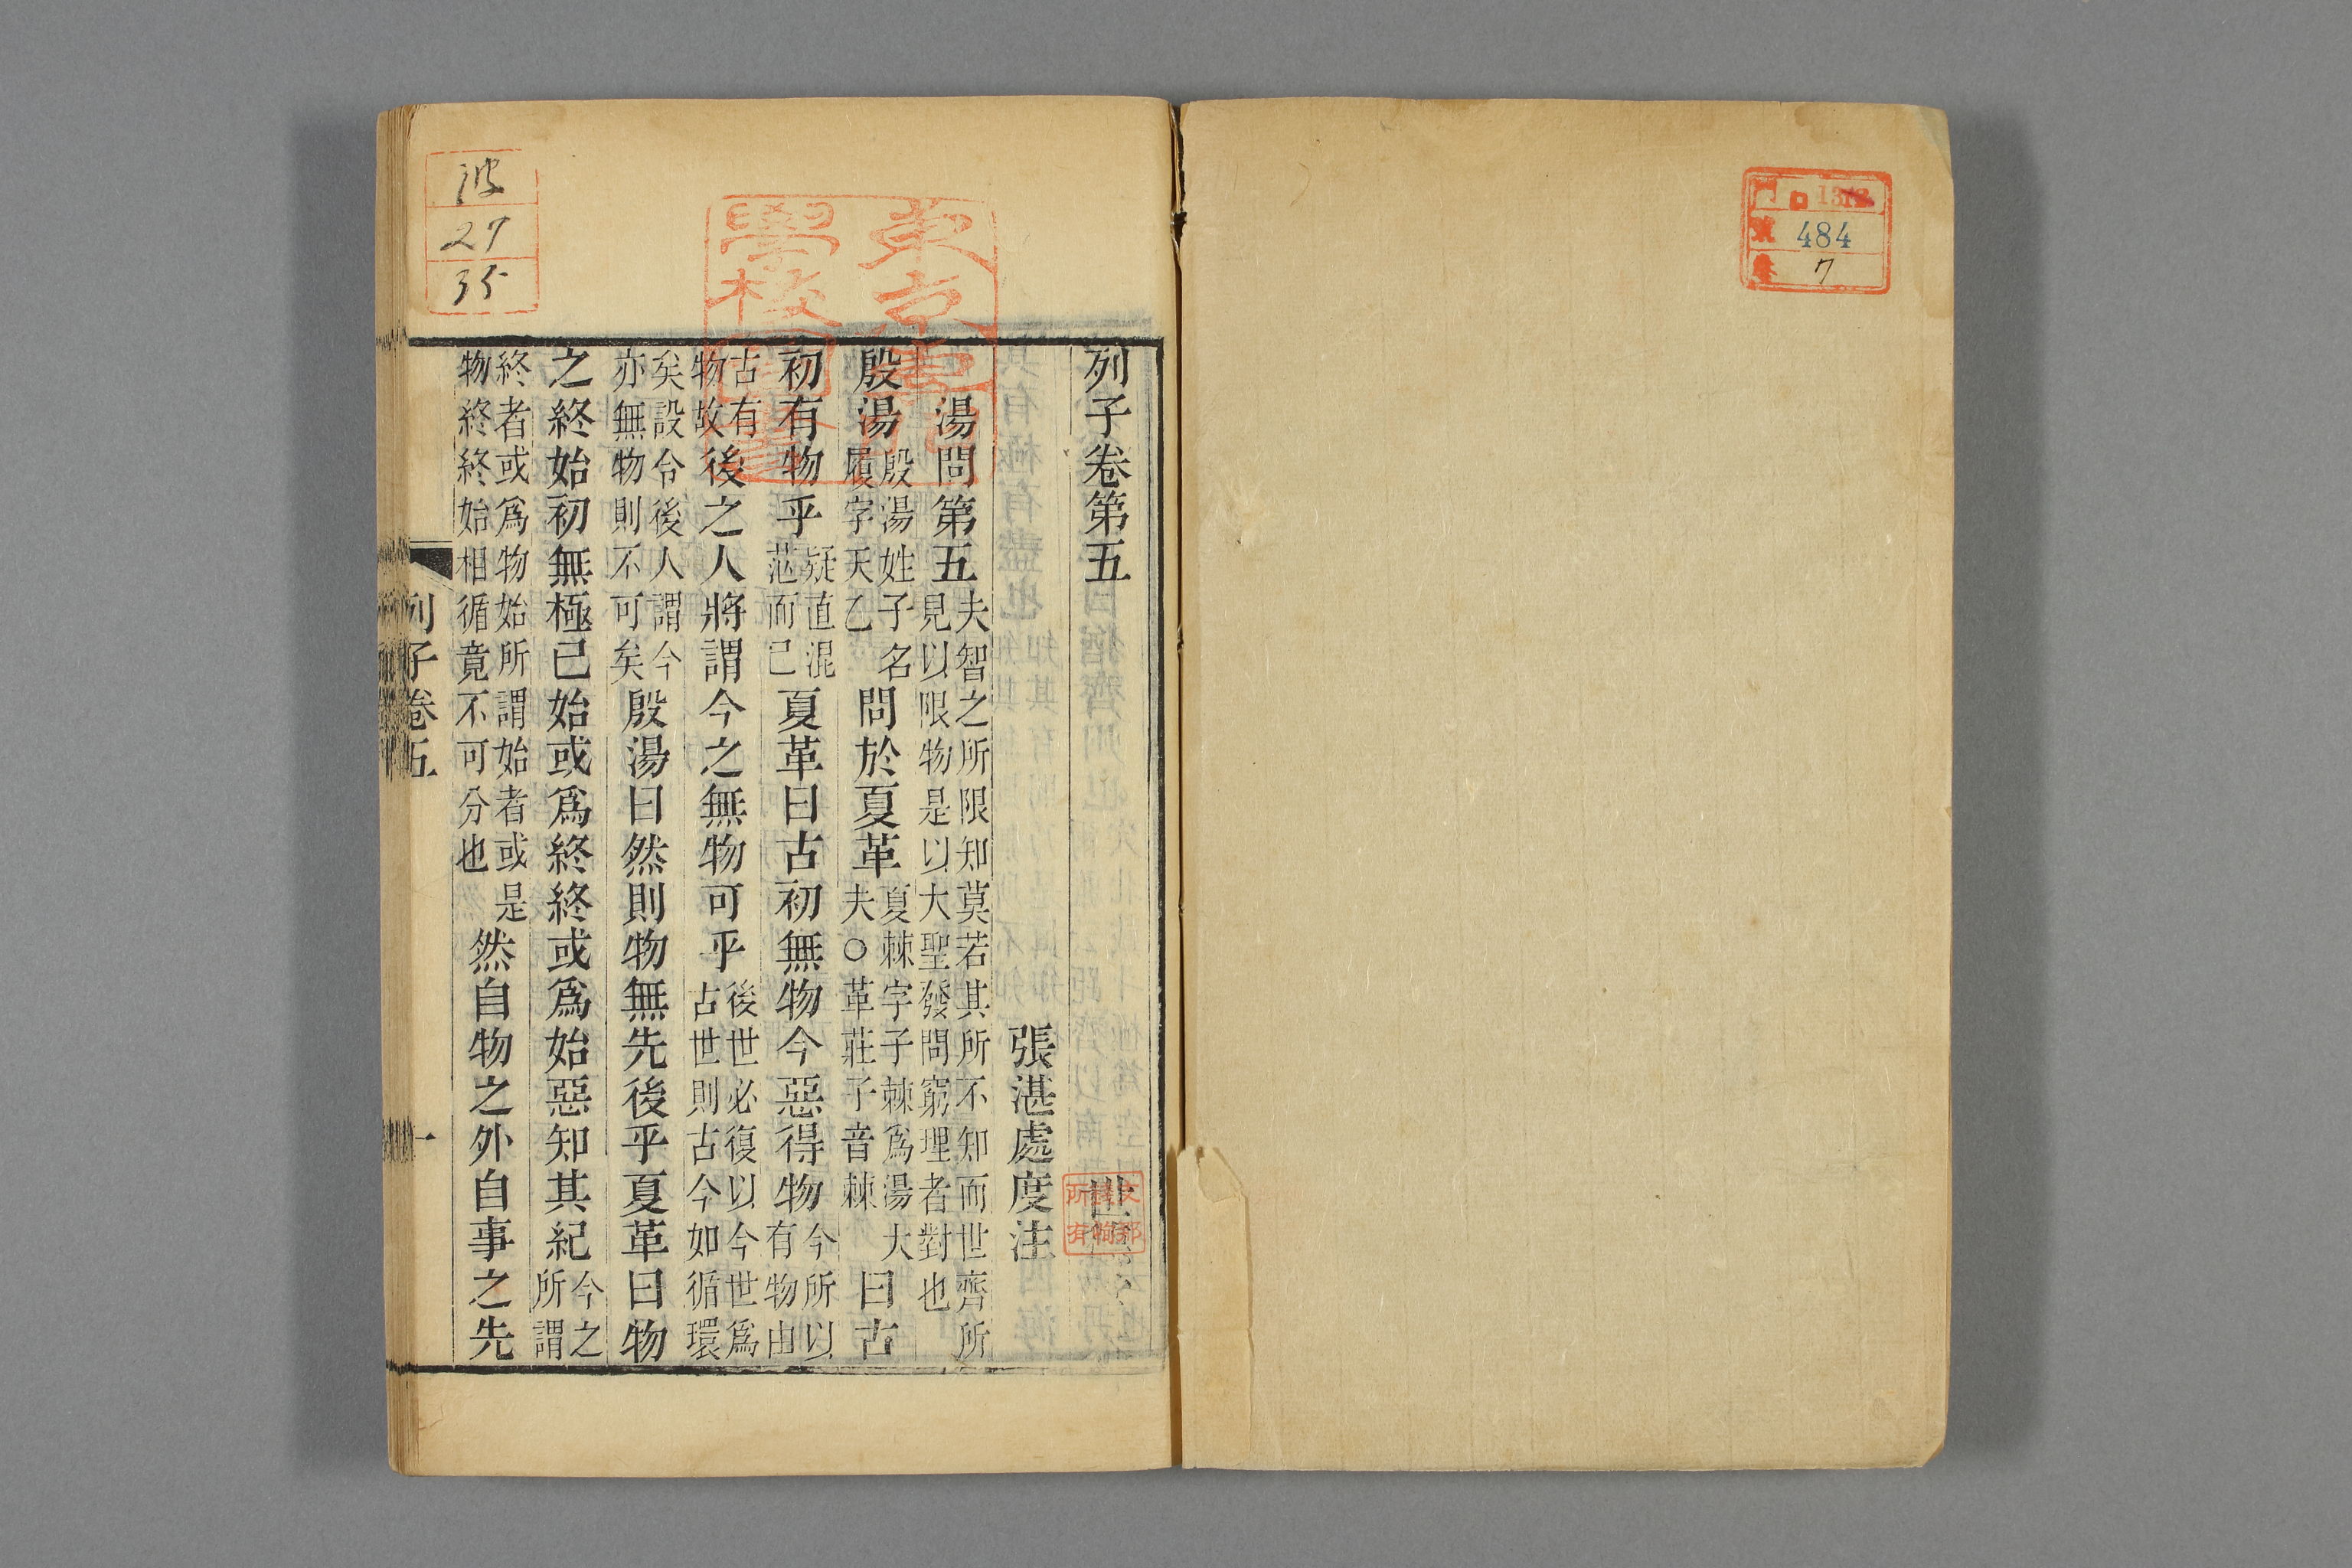 門 口 13
號 484
卷 7
東京專門
學校圖書
波
27
35
列子卷第五
張湛處度注
湯問第五夫智之所限知莫若其所不知而世齊所見以限物是以大聖發問窮理者對也
殷湯殷湯姓子名履字天乙問於夏革夏棘字子棘爲湯大夫○革莊子音棘曰古
初有物乎疑直混茫而已夏革曰古初無物今惡得物今所以有物由
古有物故後之人將謂今之無物可乎後世必復以今世爲古世則古今如循環
矣設令後人謂今亦無物則不可矣殷湯曰然則物無先後乎夏革曰物
之終始初無極已始或爲終終或爲始惡知其紀今之所謂
終者或爲物始所謂始者或是物終終始相循竟不可分也然自物之外自事之先
列子卷五 一